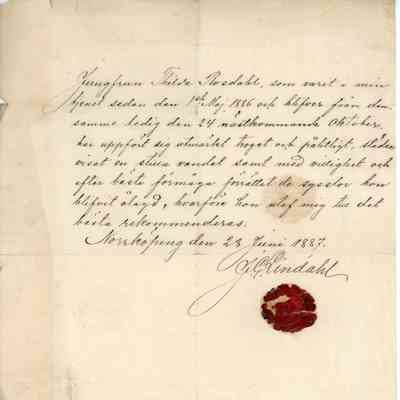 Jungfrun Thilda Rosdahl, som varit i min
tjenst sedan den 1sta Maj 1886 och blifver från den
samma ledig den 24 nästkommande Oktober,
har uppfört sig utmärkt troget och pålitligt, städse
visat en stilla vandel samt med vidighet och
efter bästa förmåga förättat de sysslor hon
blifvit ålagd, hvarföre hon utaf mig till det
bästa rekommenderas.
Norrköping den 28 Juni 1887.
Lindahl